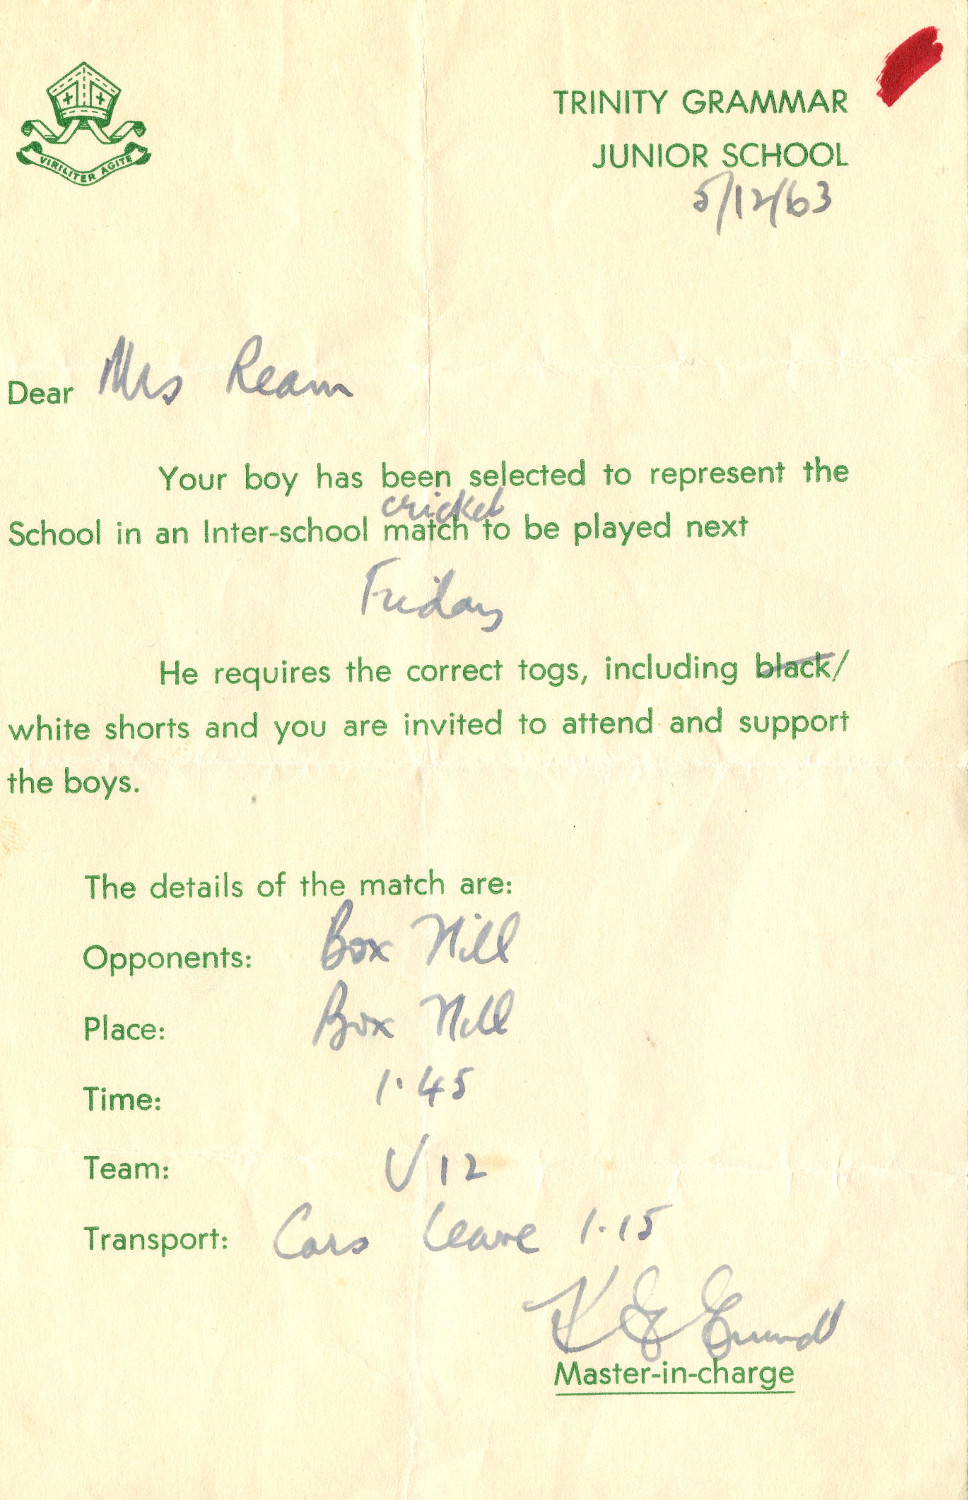 VIRILITER AGITE
TRINITY GRAMMAR
JUNIOR SCHOOL
5/12/63
Dear Mrs Ream
Your boy has been selected to represent the
cricket
School in an Inter-school match to be played next
Friday
He requires the correct togs, including black/
white shorts and you are invited to attend and support
the boys.
The details of the match are:
Opponents: Box Hill
Place: Box Hill
Time: 1.45
Team: U12
Transport: Cars leave 1.15
Master-in-charge